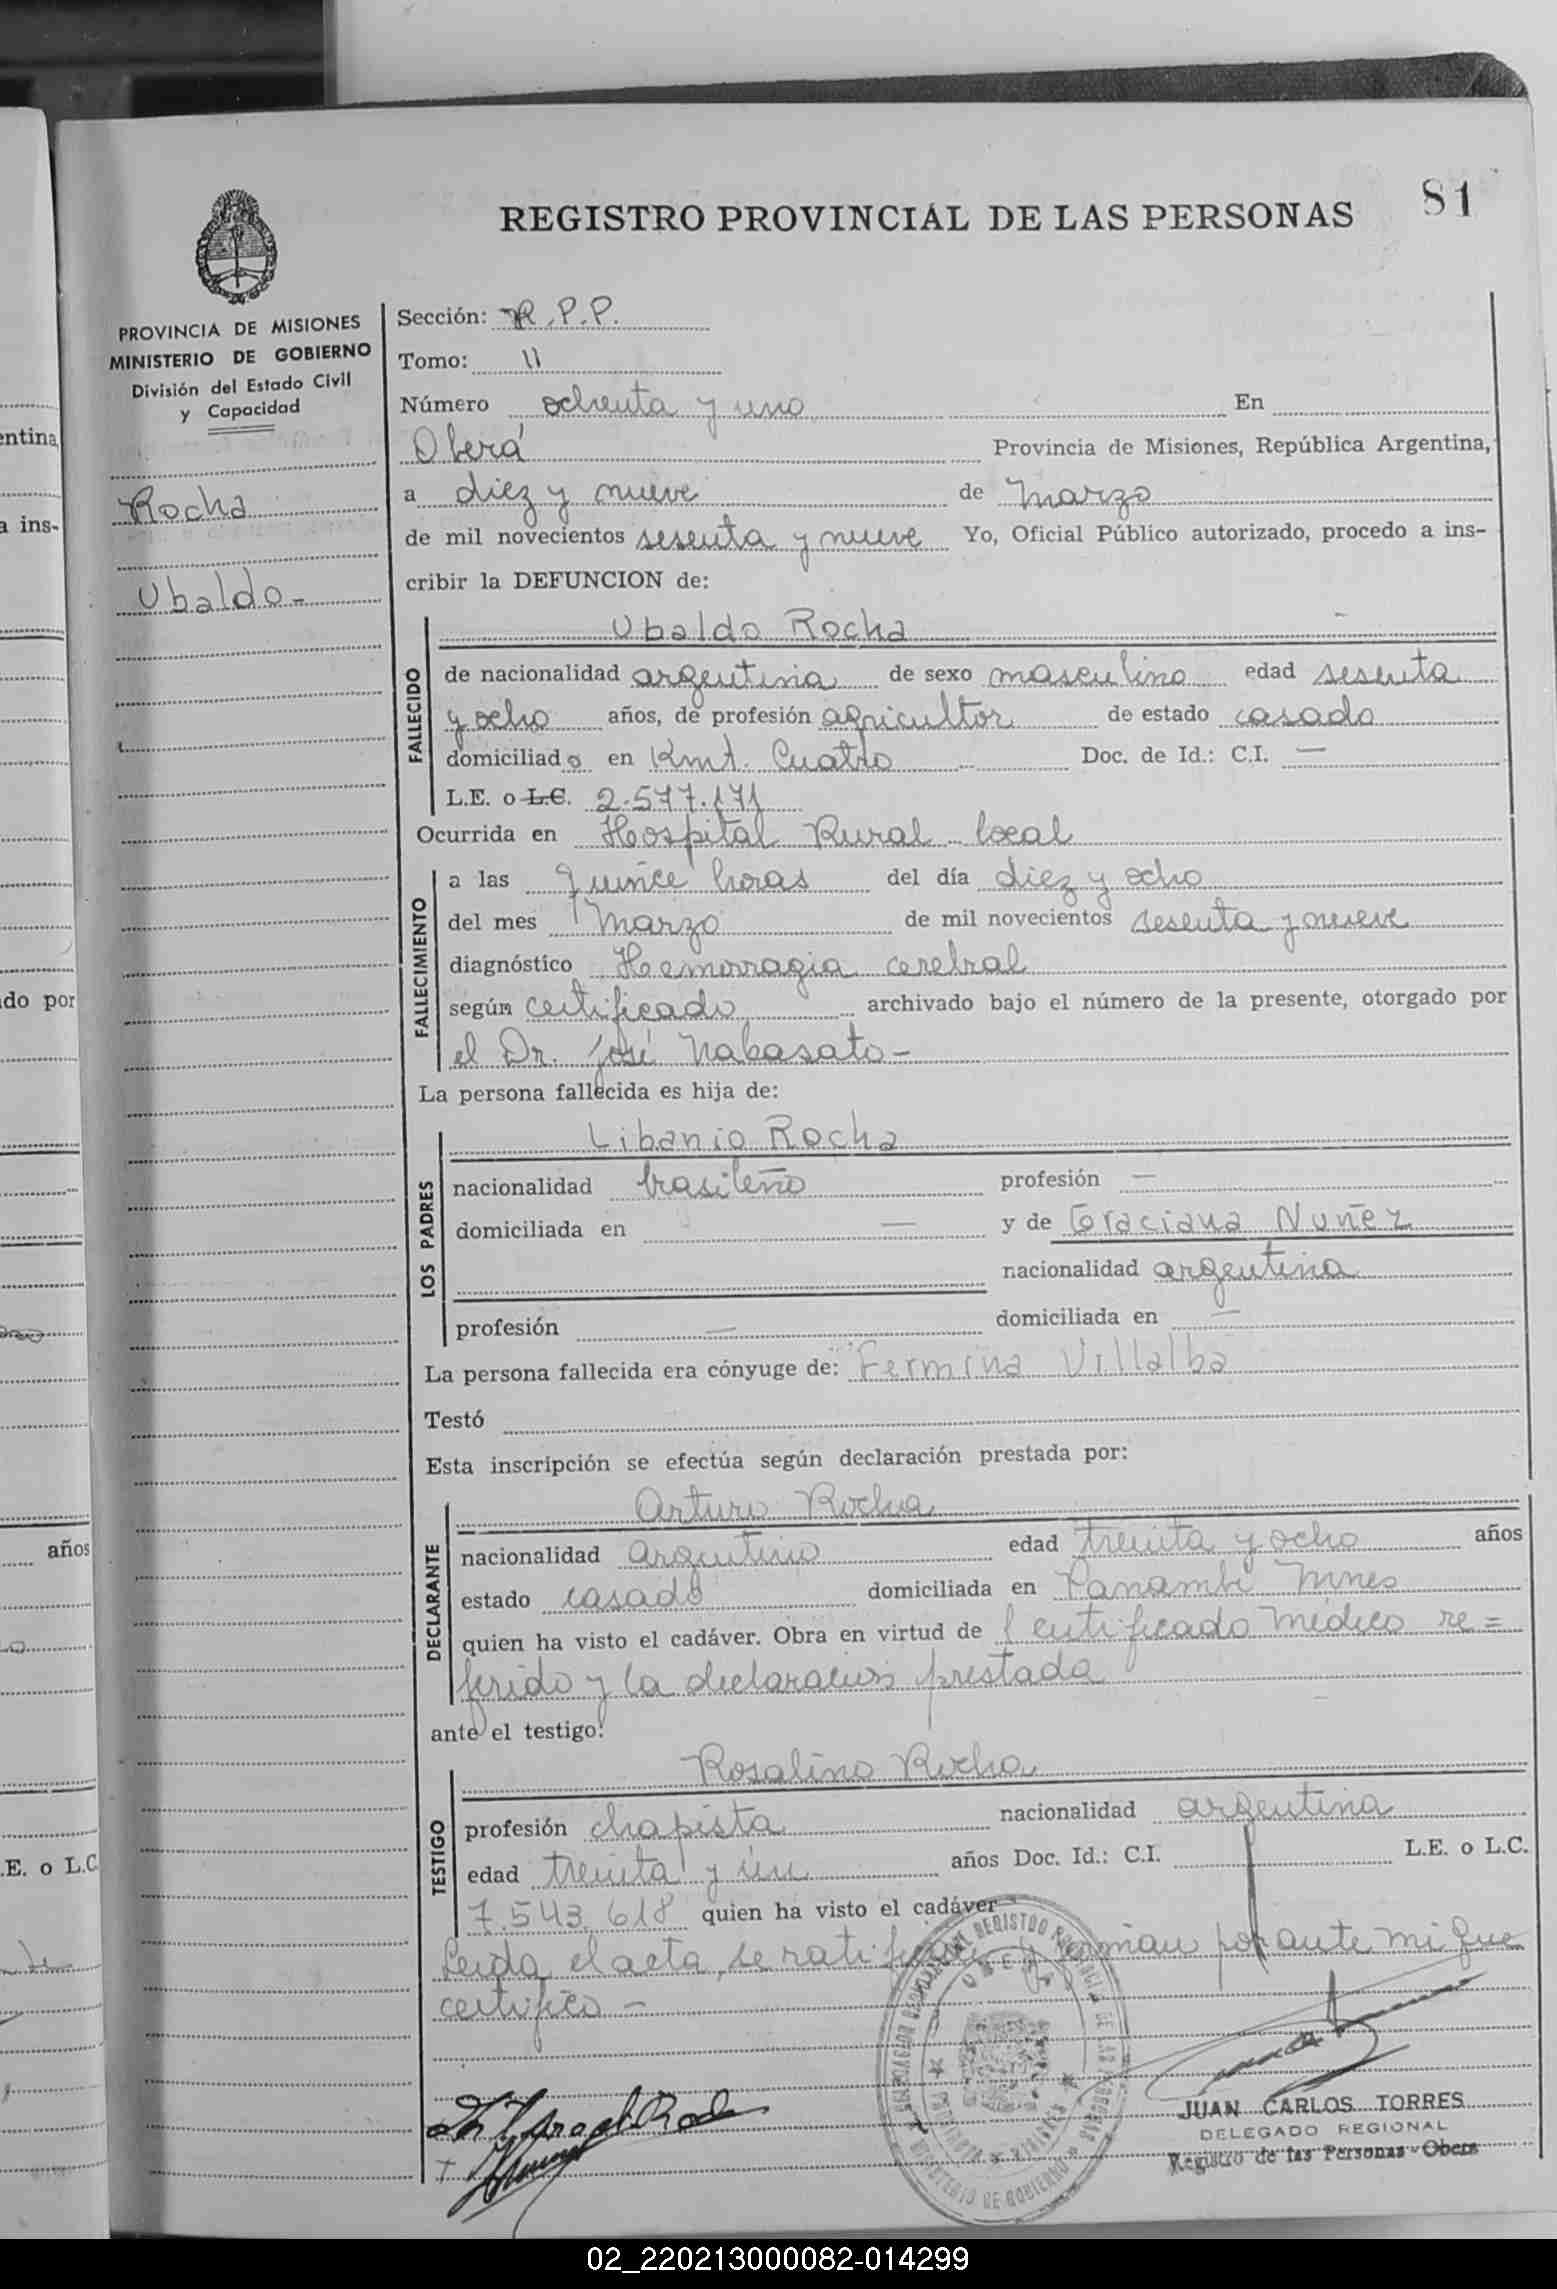 81
REGISTRO PROVINCIAL DE LAS PERSONAS
PROVINCIA DE MISIONES
MINISTERIO DE GOBIERNO
División del Estado Civil
y Capacidad
Rocha
Ubaldo-
Sección: R.P.P.
Tomo: II
Número ochenta y uno En
Oberá Provincia de Misiones, República Argentina,
a diez y nueve de Marzo
de mil novecientos sesenta y nueve Yo, Oficial Público autorizado, procedo a ins-
cribir la DEFUNCION de:
FALLECIDO
Ubaldo Rocha
de nacionalidad argentina de sexo masculino edad sesenta
y ocho años, de profesión agricultor de estado casado
domiciliado en Kmt. Cuatro Doc. de Id.: C.I. —
L.E. o L.C. 2.577.171
Ocurrida en Hospital Rural local
FALLECIMIENTO
a las quince horas del día diez y ocho
del mes Marzo de mil novecientos sesenta y nueve
diagnóstico Hemorragia cerebral
según certificado archivado bajo el número de la presente, otorgado por
el Dr. José Nakasato-
La persona fallecida es hija de:
LOS PADRES
Libanio Rocha
nacionalidad brasileño profesión —
domiciliada en — y de Graciana Nuñez
nacionalidad argentina
profesión — domiciliada en —
La persona fallecida era cónyuge de: Fermina Villalba
Testó
Esta inscripción se efectúa según declaración prestada por:
DECLARANTE
Arturo Rocha
nacionalidad argentino edad treinta y ocho años
estado casado domiciliada en Panambí Mnes
quien ha visto el cadáver. Obra en virtud de l certificado médico re=
ferido y la declaración prestada
ante el testigo:
TESTIGO
Rosalino Rocha
profesión chapista nacionalidad argentina
edad treinta y un años Doc. Id.: C.I. L.E. o L.C.
7.543.618 quien ha visto el cadáver
Leida el acta, se ratifican y firman por ante mi que
certifico -
JUAN CARLOS TORRES
DELEGADO REGIONAL
Registro de las Personas - Obera
entina,
a ins-
do por
años
.E. o L.C.
02_220213000082-014299